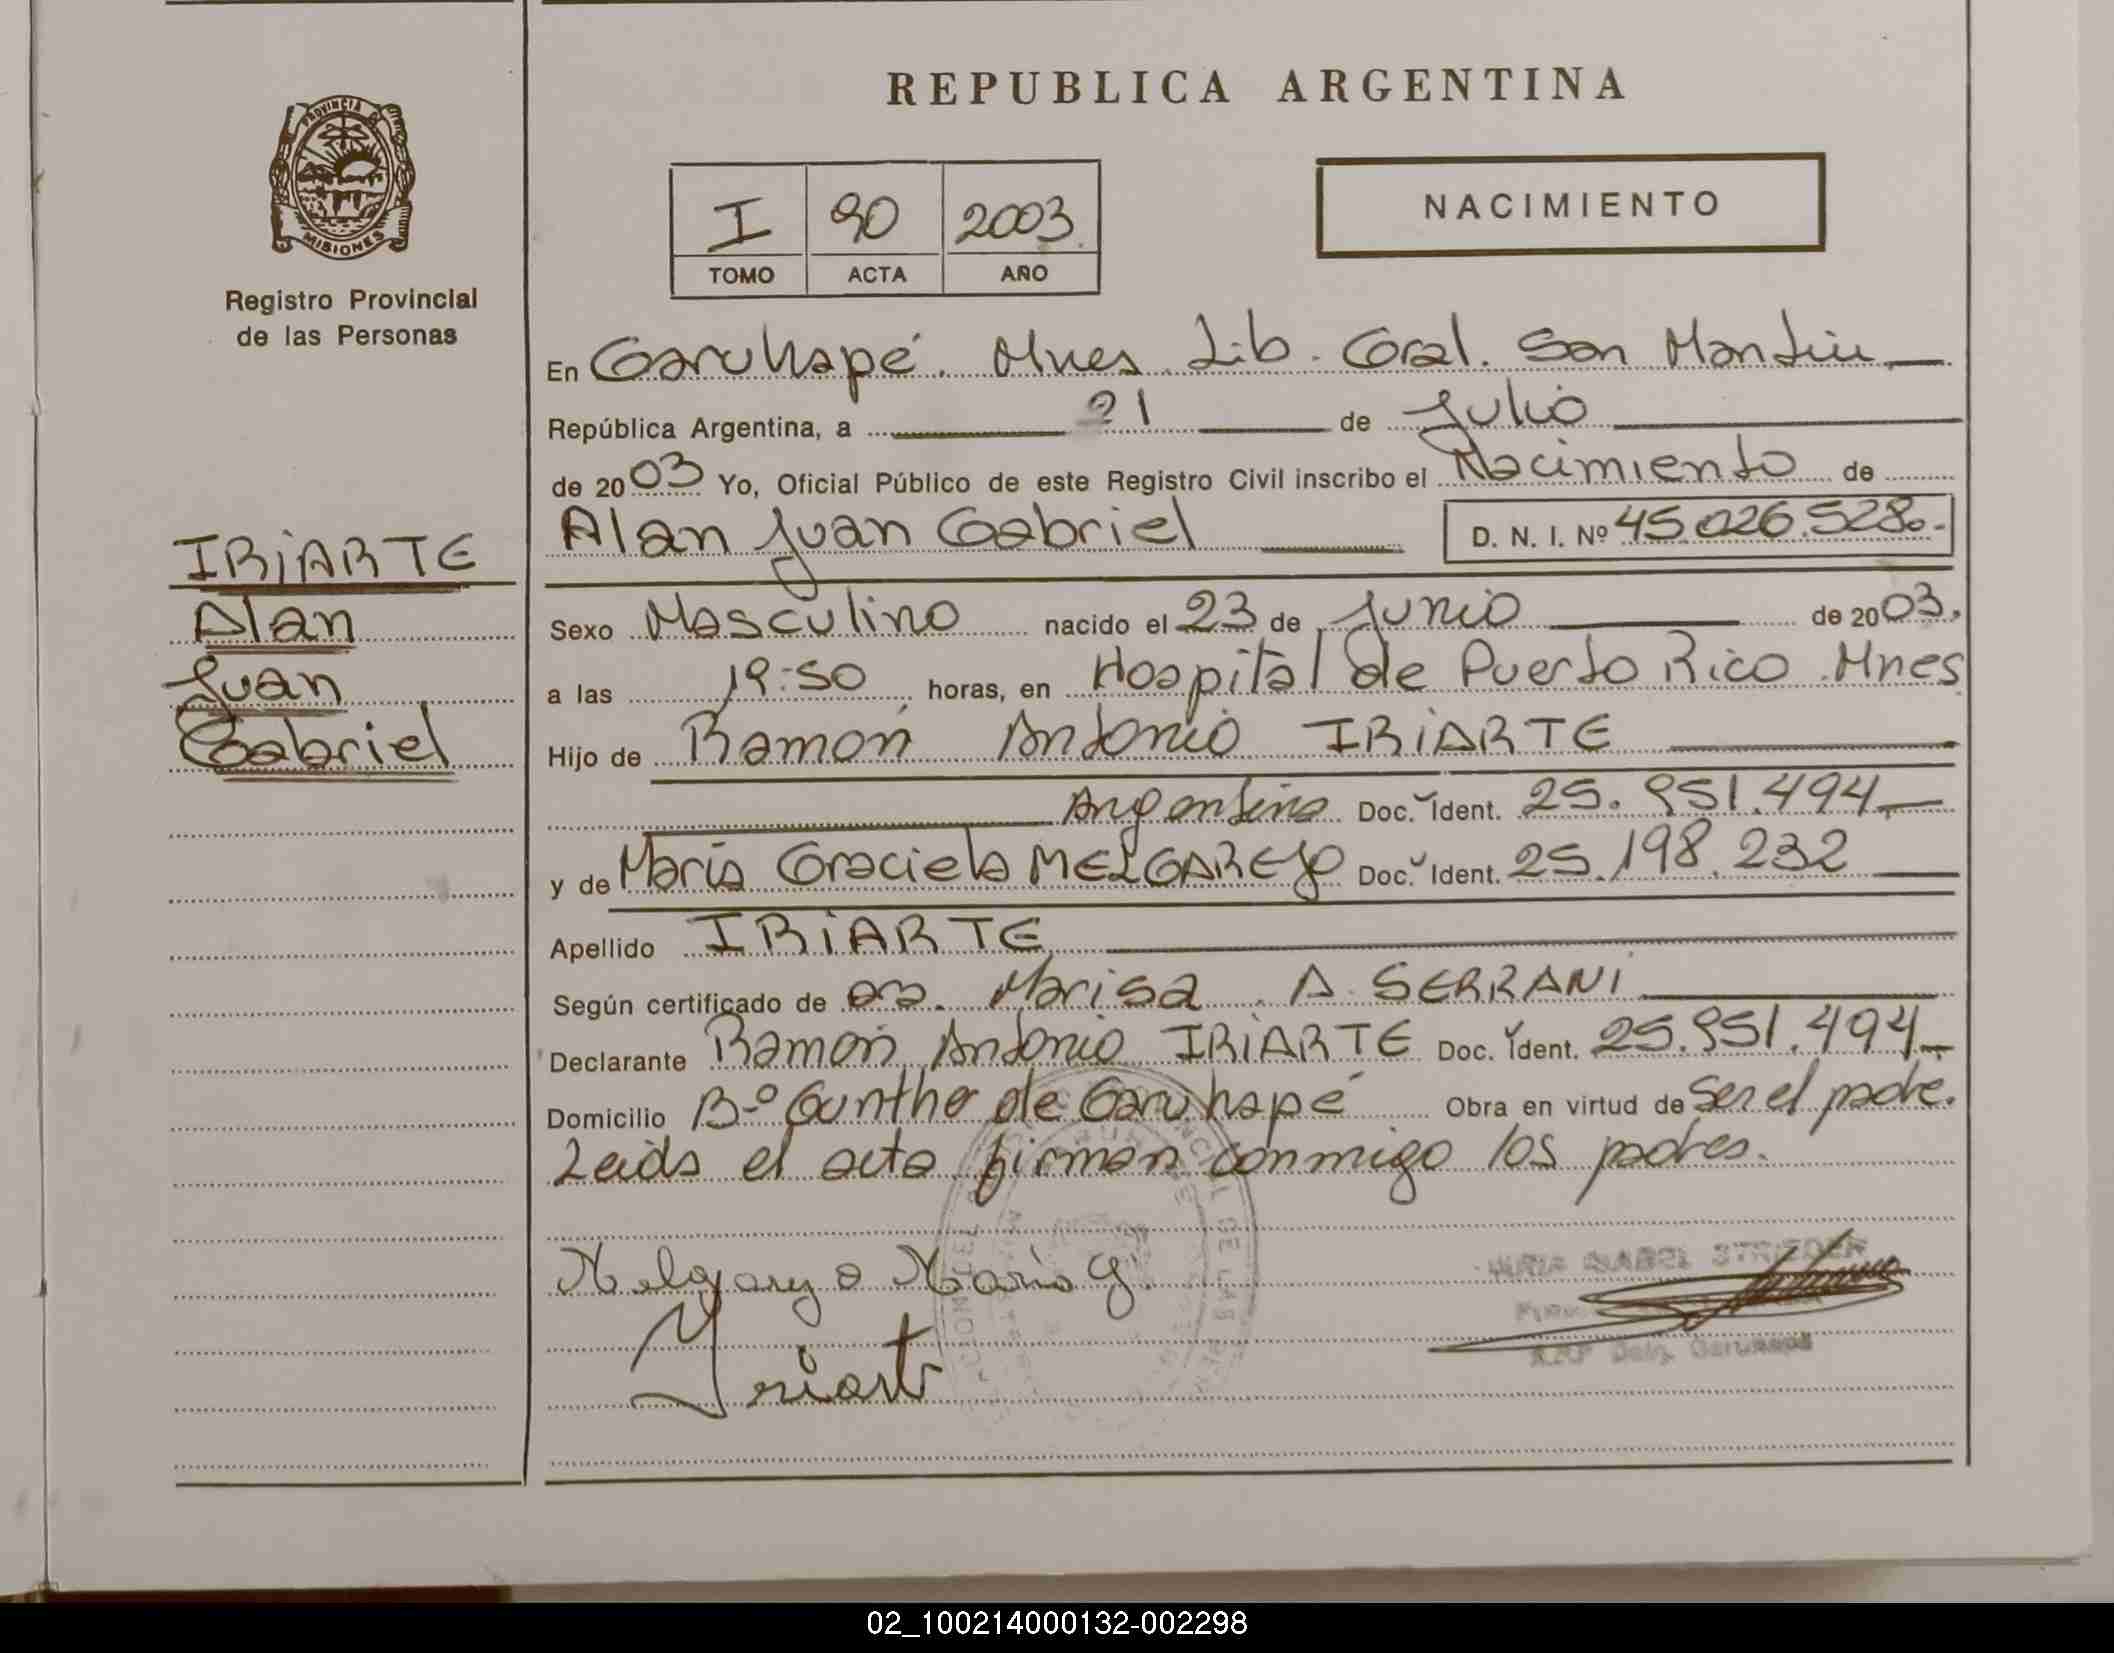 REPUBLICA ARGENTINA
PROVINCIA DE
MISIONES
Registro Provincial
de las Personas
I 90 2003
TOMO ACTA AÑO
NACIMIENTO
En Garuhapé. Mnes. Lib. Gral. San Martín
República Argentina, a 21 de Julio
de 2003 Yo, Oficial Público de este Registro Civil inscribo el Nacimiento de
Alan Juan Gabriel D. N. I. Nº 45.026.528.-
IRIARTE
Alan
Juan
Gabriel
Sexo Masculino nacido el 23 de Junio de 2003.
a las 19:50 horas, en Hospital de Puerto Rico Mnes
Hijo de Ramón Antonio IRIARTE
Argentino Doc. Ident. 25.951.494
y de María Graciela MELGAREJO Doc. Ident. 25.198.232
Apellido IRIARTE
Según certificado de Dra. Marisa A. SERRANI
Declarante Ramón Antonio IRIARTE Doc. Ident. 25.951.494
Domicilio Bº Gunther de Garuhapé Obra en virtud de Ser el padre.
Leida el acta firman conmigo los padres.
Melgarejo Maria G.
Iriarte
R.P.P Deleg. Garuhapé
02_100214000132-002298